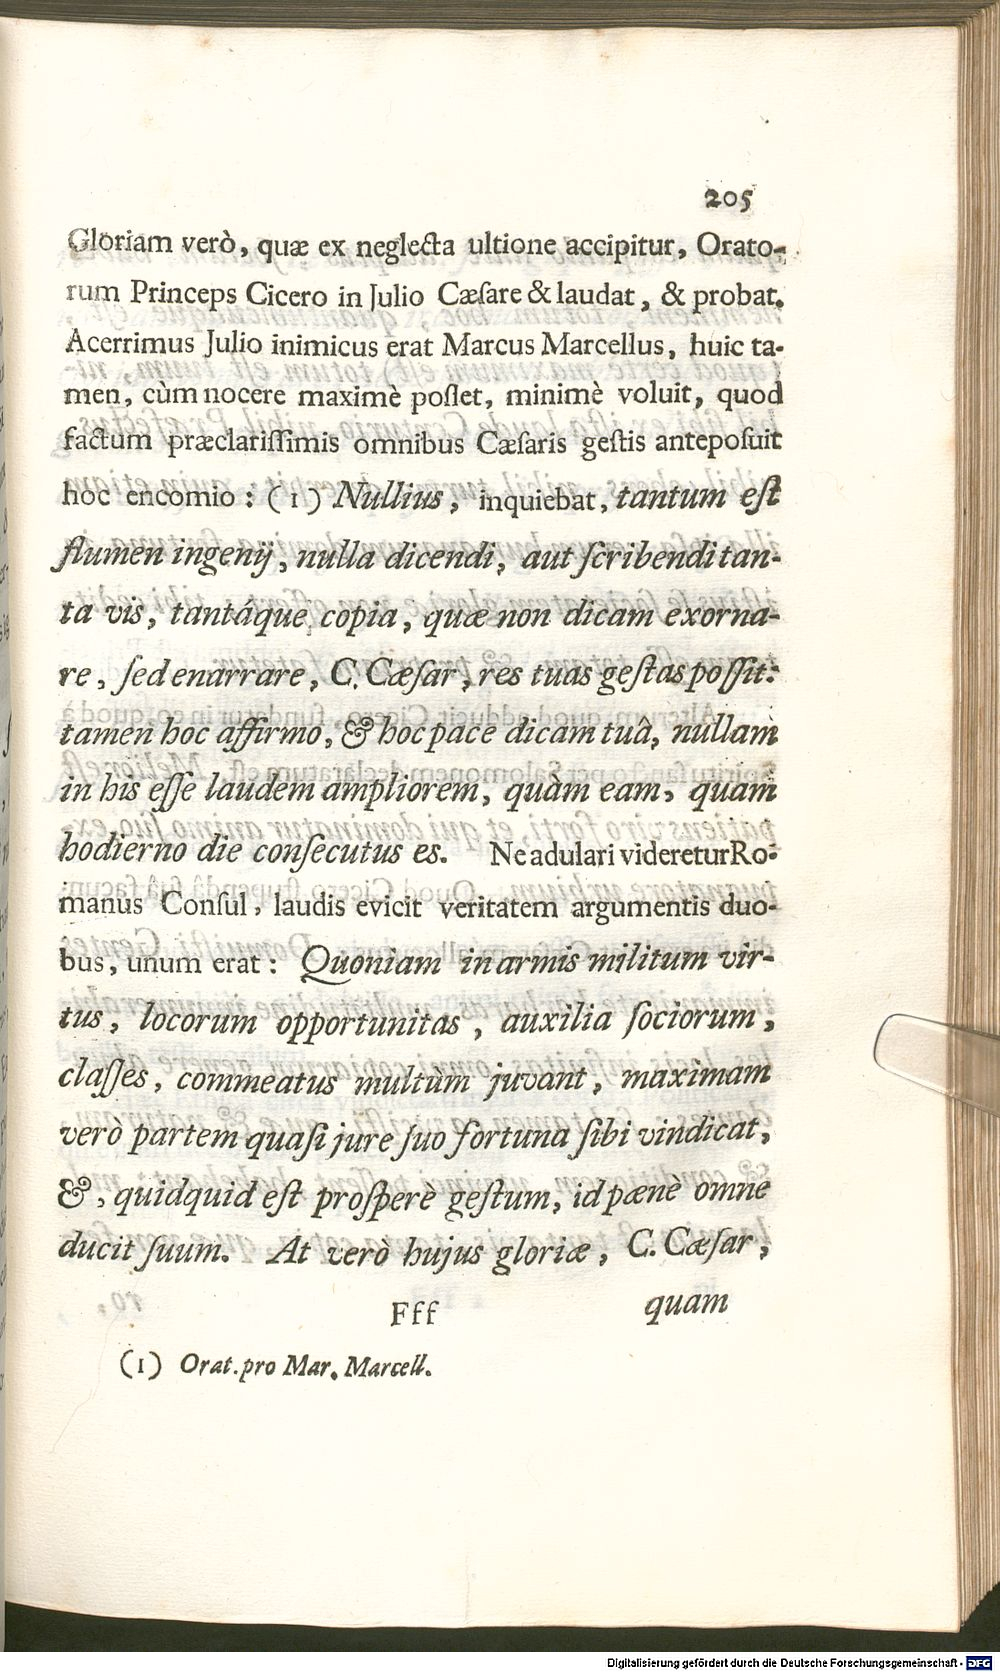 205
Gloriam verò, quæ ex neglecta ultione accipitur, Orato-
rum Princeps Cicero in Julio Cæſare & laudat, & probat.
Acerrimus Julio inimicus erat Marcus Marcellus, huic ta-
men, cùm nocere maximè poſſet, minimè voluit, quod
factum præclariſſimis omnibus Cæſaris geſtis antepoſuit
hoc encomio: (1) Nullius, inquiebat, tantum eſt
flumen ingenij, nulla dicendi, aut ſcribendi tan-
ta vis, tantáque copia, quæ non dicam exorna-
re, ſed enarrare, C. Cæſar, res tuas geſtas poſſit:
tamen hoc affirmo, & hoc pace dicam tuâ, nullam
in his eſſe laudem ampliorem, quàm eam, quam
hodierno die conſecutus es. Ne adulari videretur Ro-
manus Conſul, laudis evicit veritatem argumentis duo-
bus, unum erat: Quoniam in armis militum vir-
tus, locorum opportunitas, auxilia ſociorum,
claſſes, commeatus multùm juvant, maximam
verò partem quaſi jure ſuo fortuna ſibi vindicat,
&, quidquid eſt proſperè geſtum, id pænè omne
ducit ſuum. At verò hujus gloriæ, C. Cæſar,
Fff quam
(1) Orat. pro Mar. Marcell.
Digitalisierung gefördert durch die Deutsche Forschungsgemeinschaft - DFG